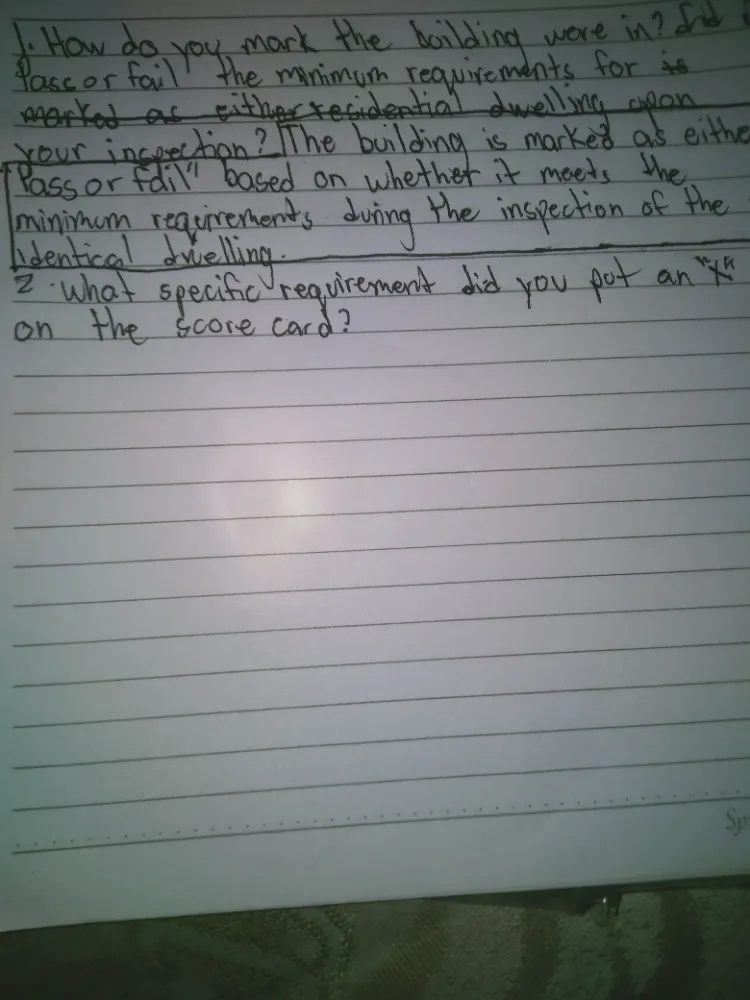 1. How do you mark the building were in? Did
"Pass or fail" the minimum requirements for is
marked as either residential dwelling upon
your inspection? The building is marked as eithe
"Pass or fail" based on whether it meets the
minimum requirements during the inspection of the
identical dwelling.
2. What specific requirement did you put an "X"
on the score card?
Sp